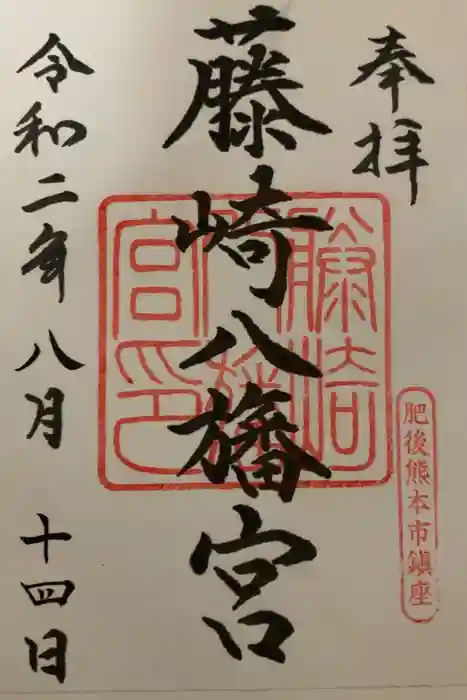 奉拝
肥後熊本市鎮座
藤崎八旛宮
藤崎八旛宮印
令和二年八月十四日